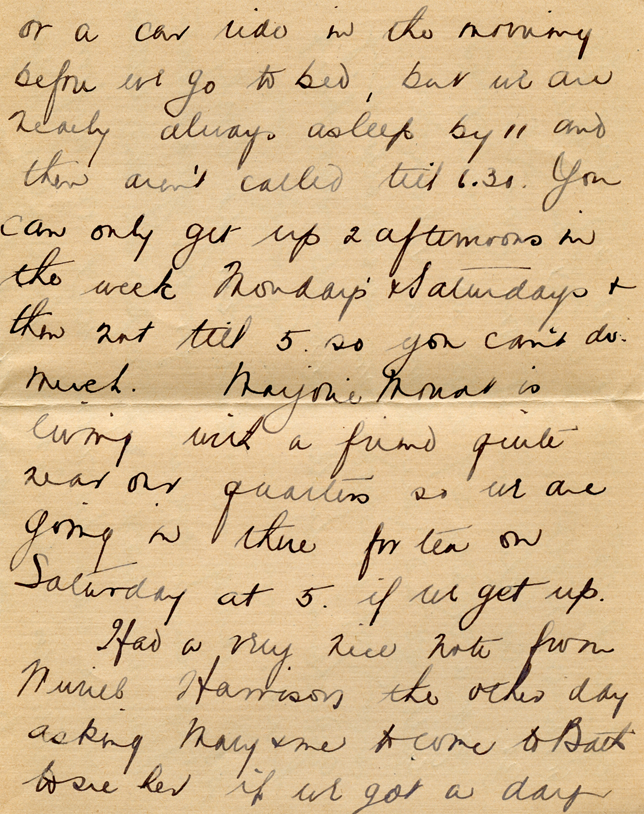 or a car ride in the morning
before we go to bed, but we are
nearly always asleep by 11 and
then aren't called till 6.30. You
can only get up 2 afternoons in
the week Mondays & Saturdays &
then not till 5. so you can't do
much. Marjorie Mowat is
living with a friend quite
near our quarters so we are
going in there for tea on
Saturday at 5. if we get up.
Had a very nice note from
Muriel Harrison the other day
asking Mary & me to come to Bath
to see her if we got a day